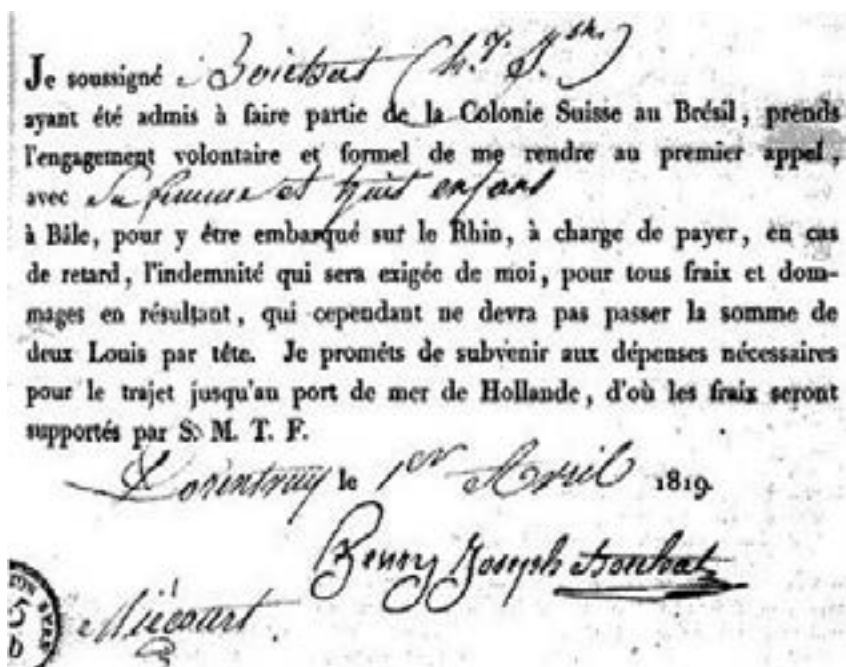 Je soussigné Boichat (h.y J.ph)
ayant été admis à faire partie de la Colonie Suisse au Brésil, prends
l'engagement volontaire et formel de me rendre au premier appel,
avec Sa femme et huit enfans
à Bâle, pour y être embarqué sur le Rhin, à charge de payer, en cas
de retard, l'indemnité qui sera exigée de moi, pour tous fraix et dom-
mages en résultant, qui cependant ne devra pas passer la somme de
deux Louis par tête. Je promèts de subvenir aux dépenses nécessaires
pour le trajet jusqu'au port de mer de Hollande, d'où les fraix seront
supportés par S. M. T. F.
Porentruy le 1er Avril 1819.
Henry Joseph Boichat
Miécourt.